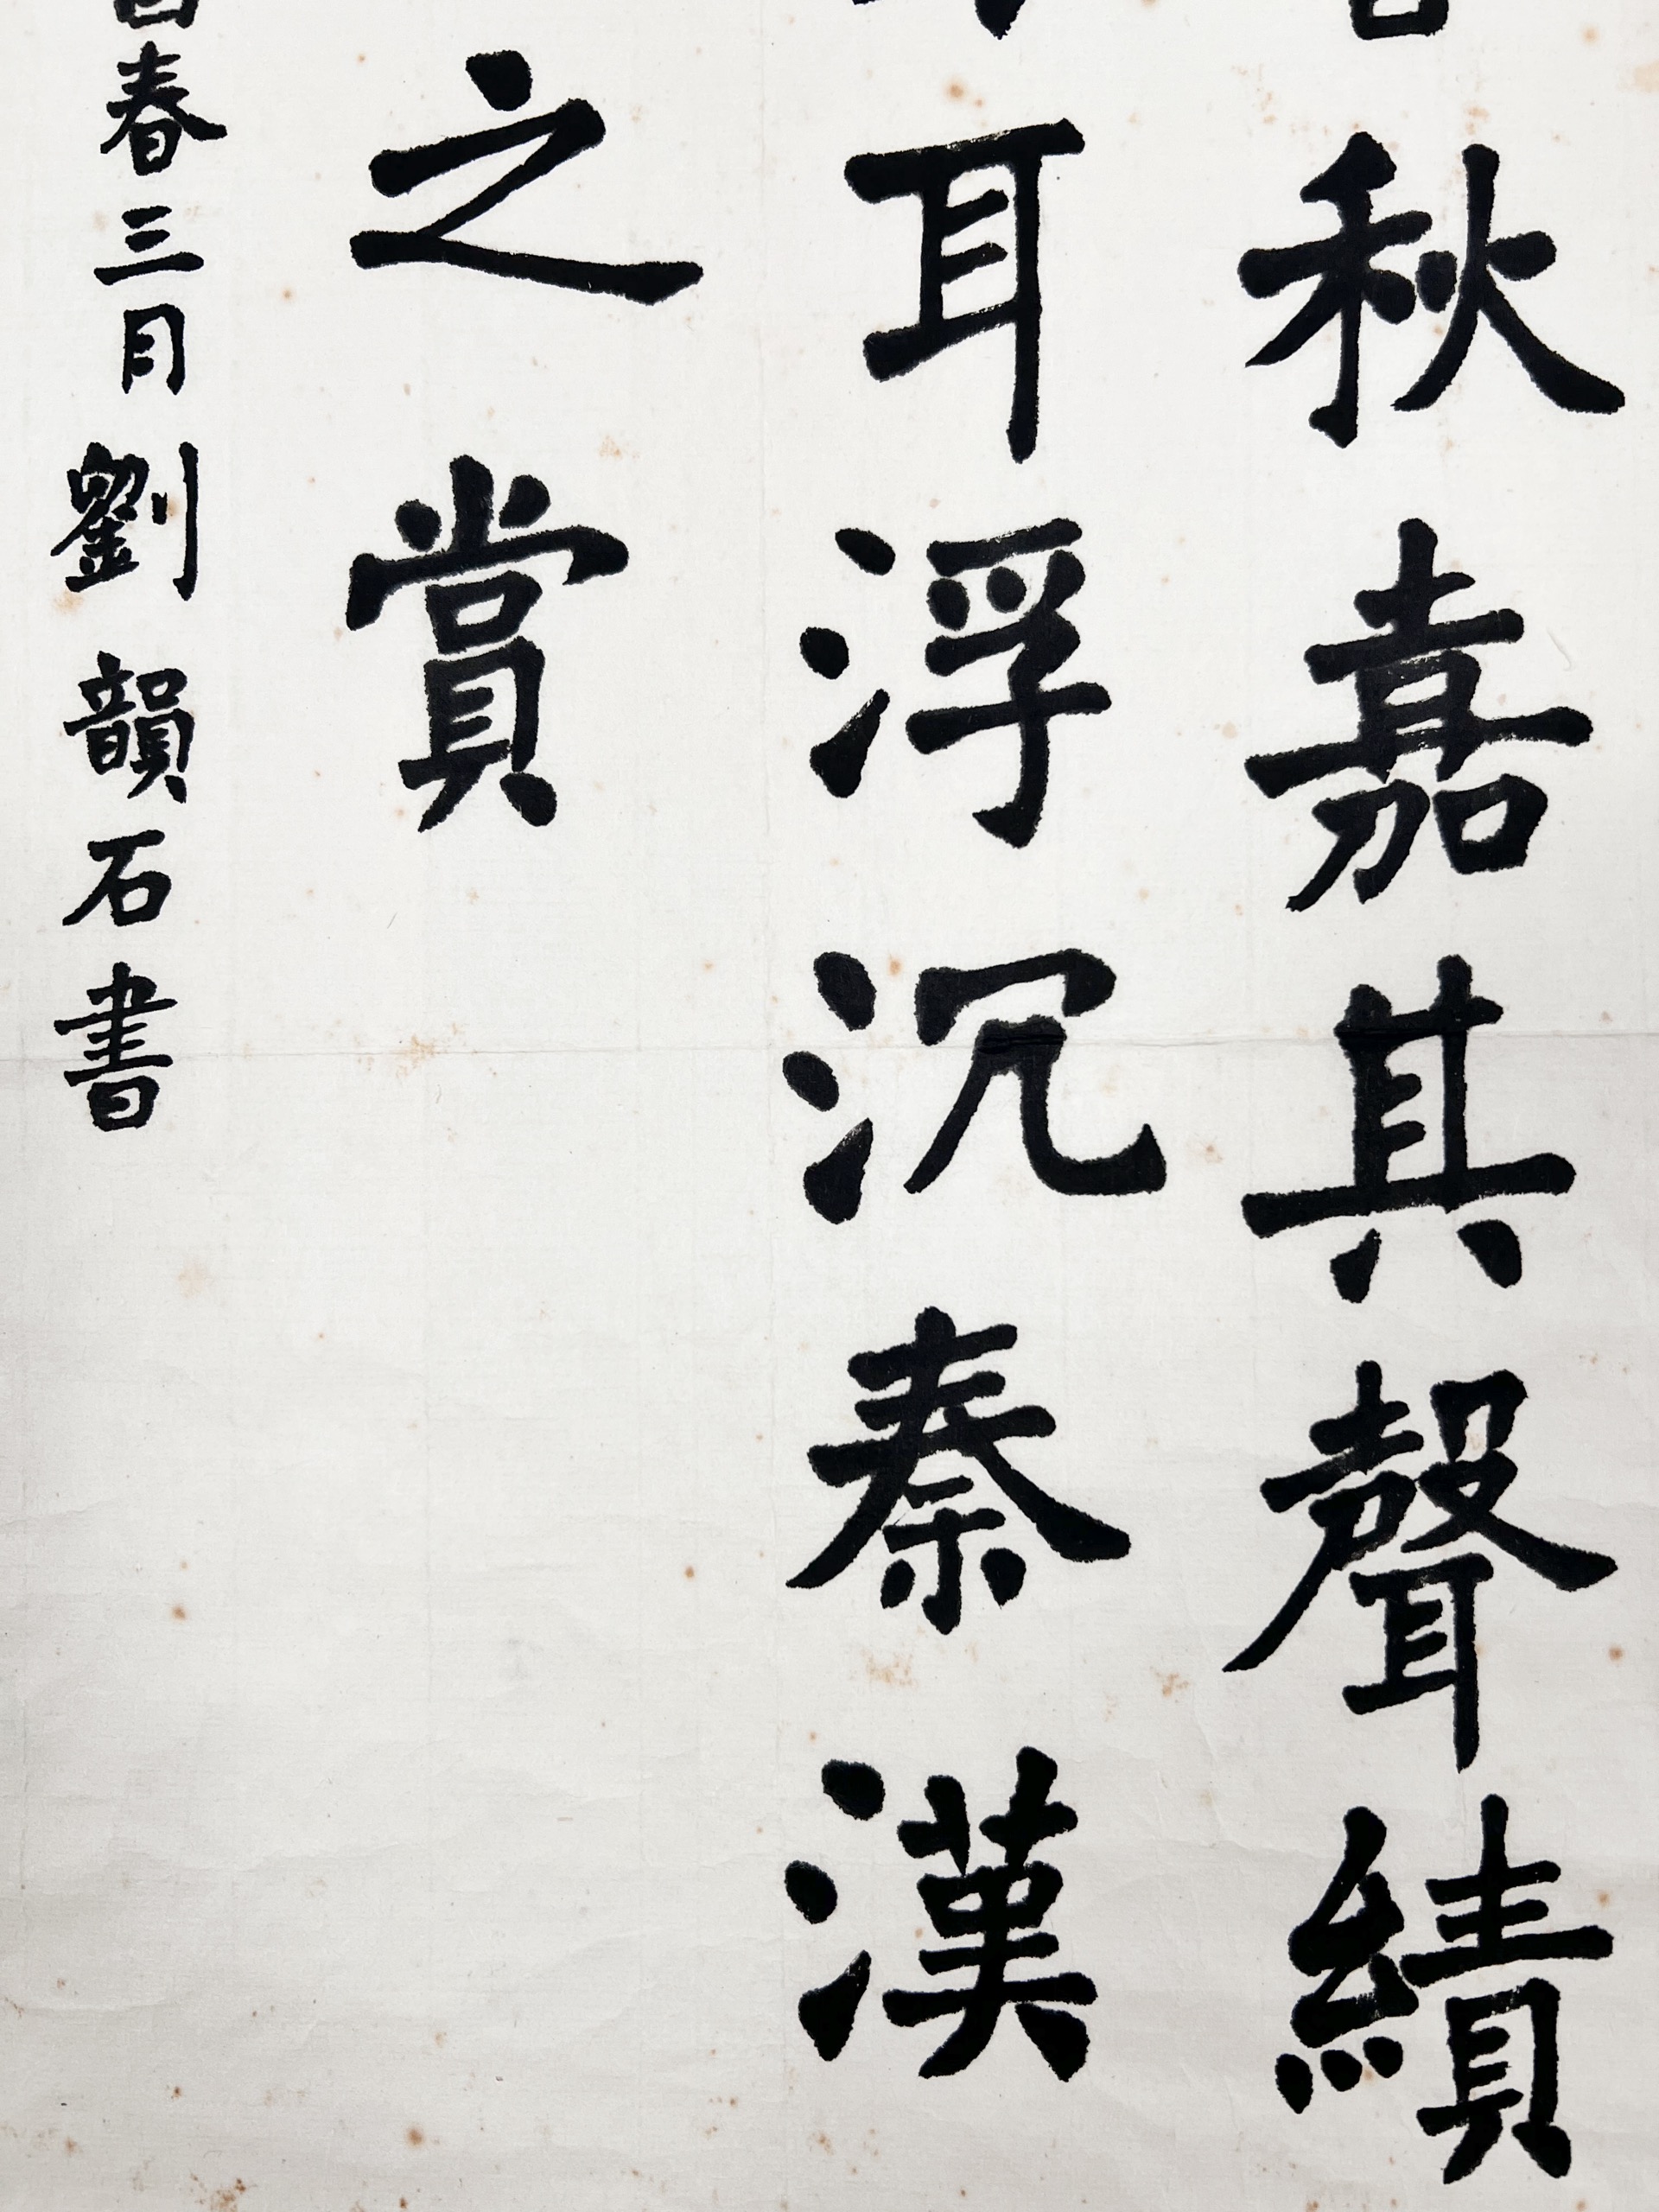 秋嘉其聲績
耳浮沉秦漢
之賞
春三月劉韻石書